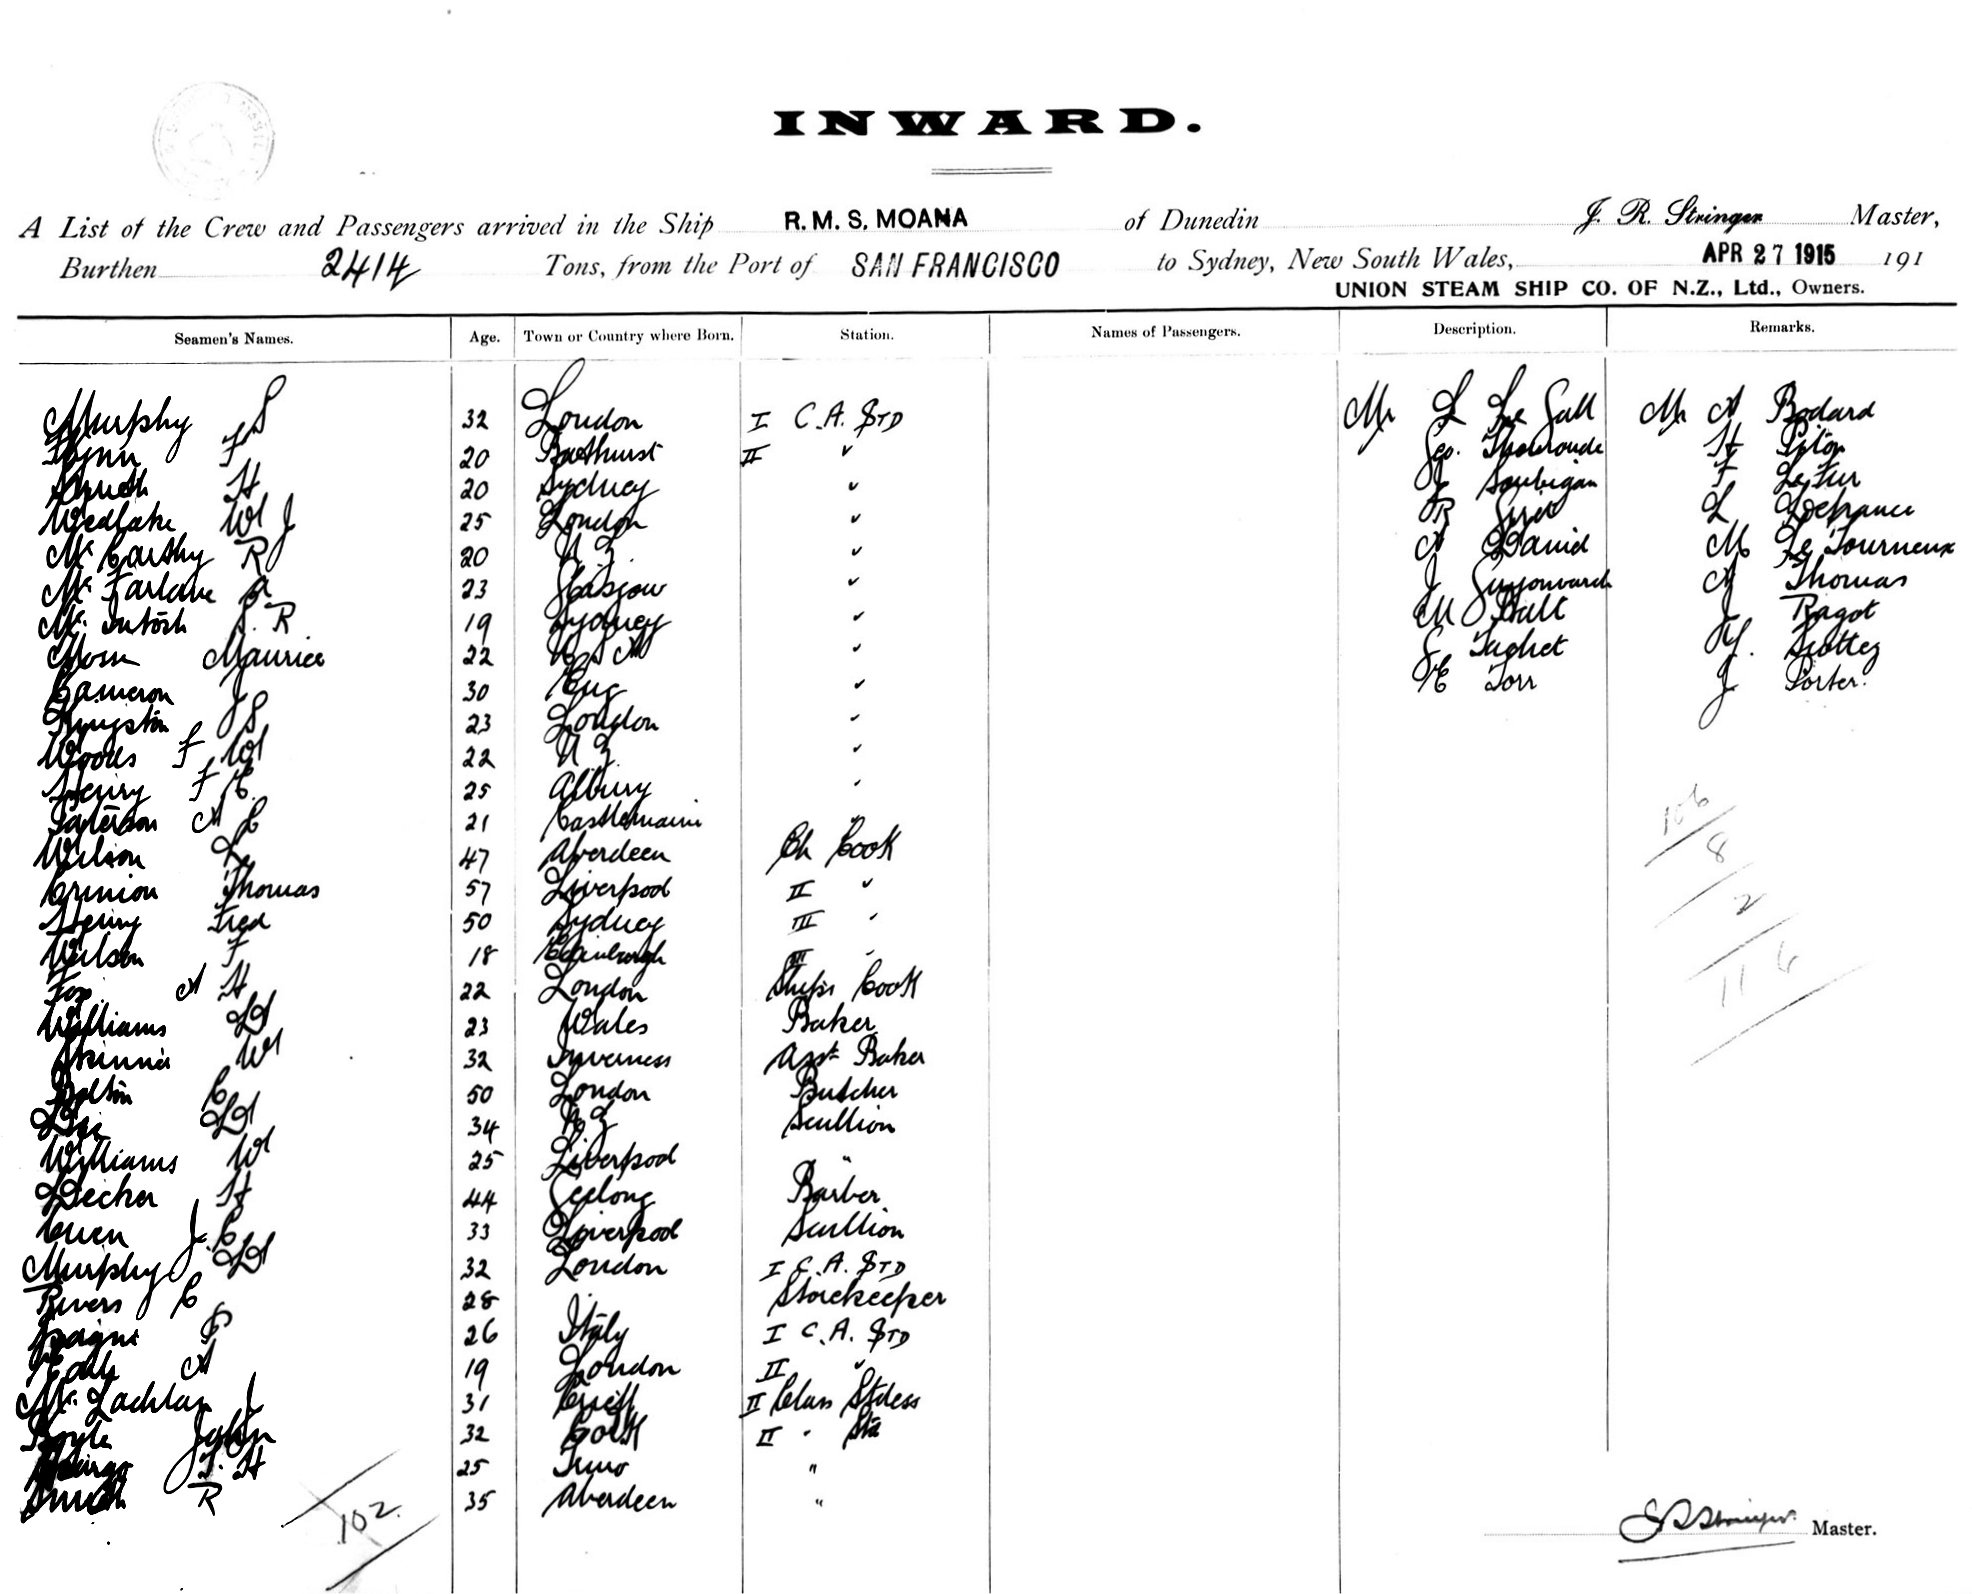 INWARD.
A List of the Crew and Passengers arrived in the Ship R. M. S. MOANA of Dunedin J. R. Stringer Master,
Burthen 2414 Tons, from the Port of SAN FRANCISCO to Sydney, New South Wales, APR 27 1915 191
UNION STEAM SHIP CO. OF N.Z., Ltd., Owners.
Seamen's Names. Age. Town or Country where Born. Station. Names of Passengers. Description. Remarks.
Murphy S 32 London I C.A. STD Mr L Le Gall Mr A Bodard
Flynn F 20 Bathurst II " Geo. H Piton
Smith H 20 Sydney " J Soubigan F Le Fur
Wedlake W J 25 London " R L Defrance
McCarthy R 20 N Z " A David M Le Tourneux
McFarlane A 23 Glasgow " J Guyonvarch A Thomas
McIntosh S. R 19 Sydney " M J Ragot
Moss Maurice 22 U S A " G Tachet
Cameron J 30 Eng " E Torr J Porter.
Kingston J S 23 London "
Woods F W 22 N Z "
Henry F E. 25 Albury "
Paterson A C 21 Castlemaine "
Wilson L 47 Aberdeen Ch Cook
Crinion Thomas 57 Liverpool II "
Henry Fred 50 Sydney III "
Wilson F 18 Edinburgh III "
Fox. A H 22 London Ship's Cook
Williams D 23 Wales Baker
Skinner W 32 Inverness Asst Baker
Bolton C 50 London Butcher
D 34 N Z Scullion
Williams W 25 Liverpool "
Decker H 44 Geelong Barber
Cuen J. C 33 Liverpool Scullion
Murphy D 32 London I C.A. STD
Rivers C 28 Storekeeper
P 26 Italy I C.A. STD
A 19 London II "
McLachlan J 31 Crieff II Class Stdess
Boyle John 32 Cork II " Std
T. H 25 Truro "
Smith R 35 Aberdeen "
106
8
2
116
102.
J R Stringer Master.